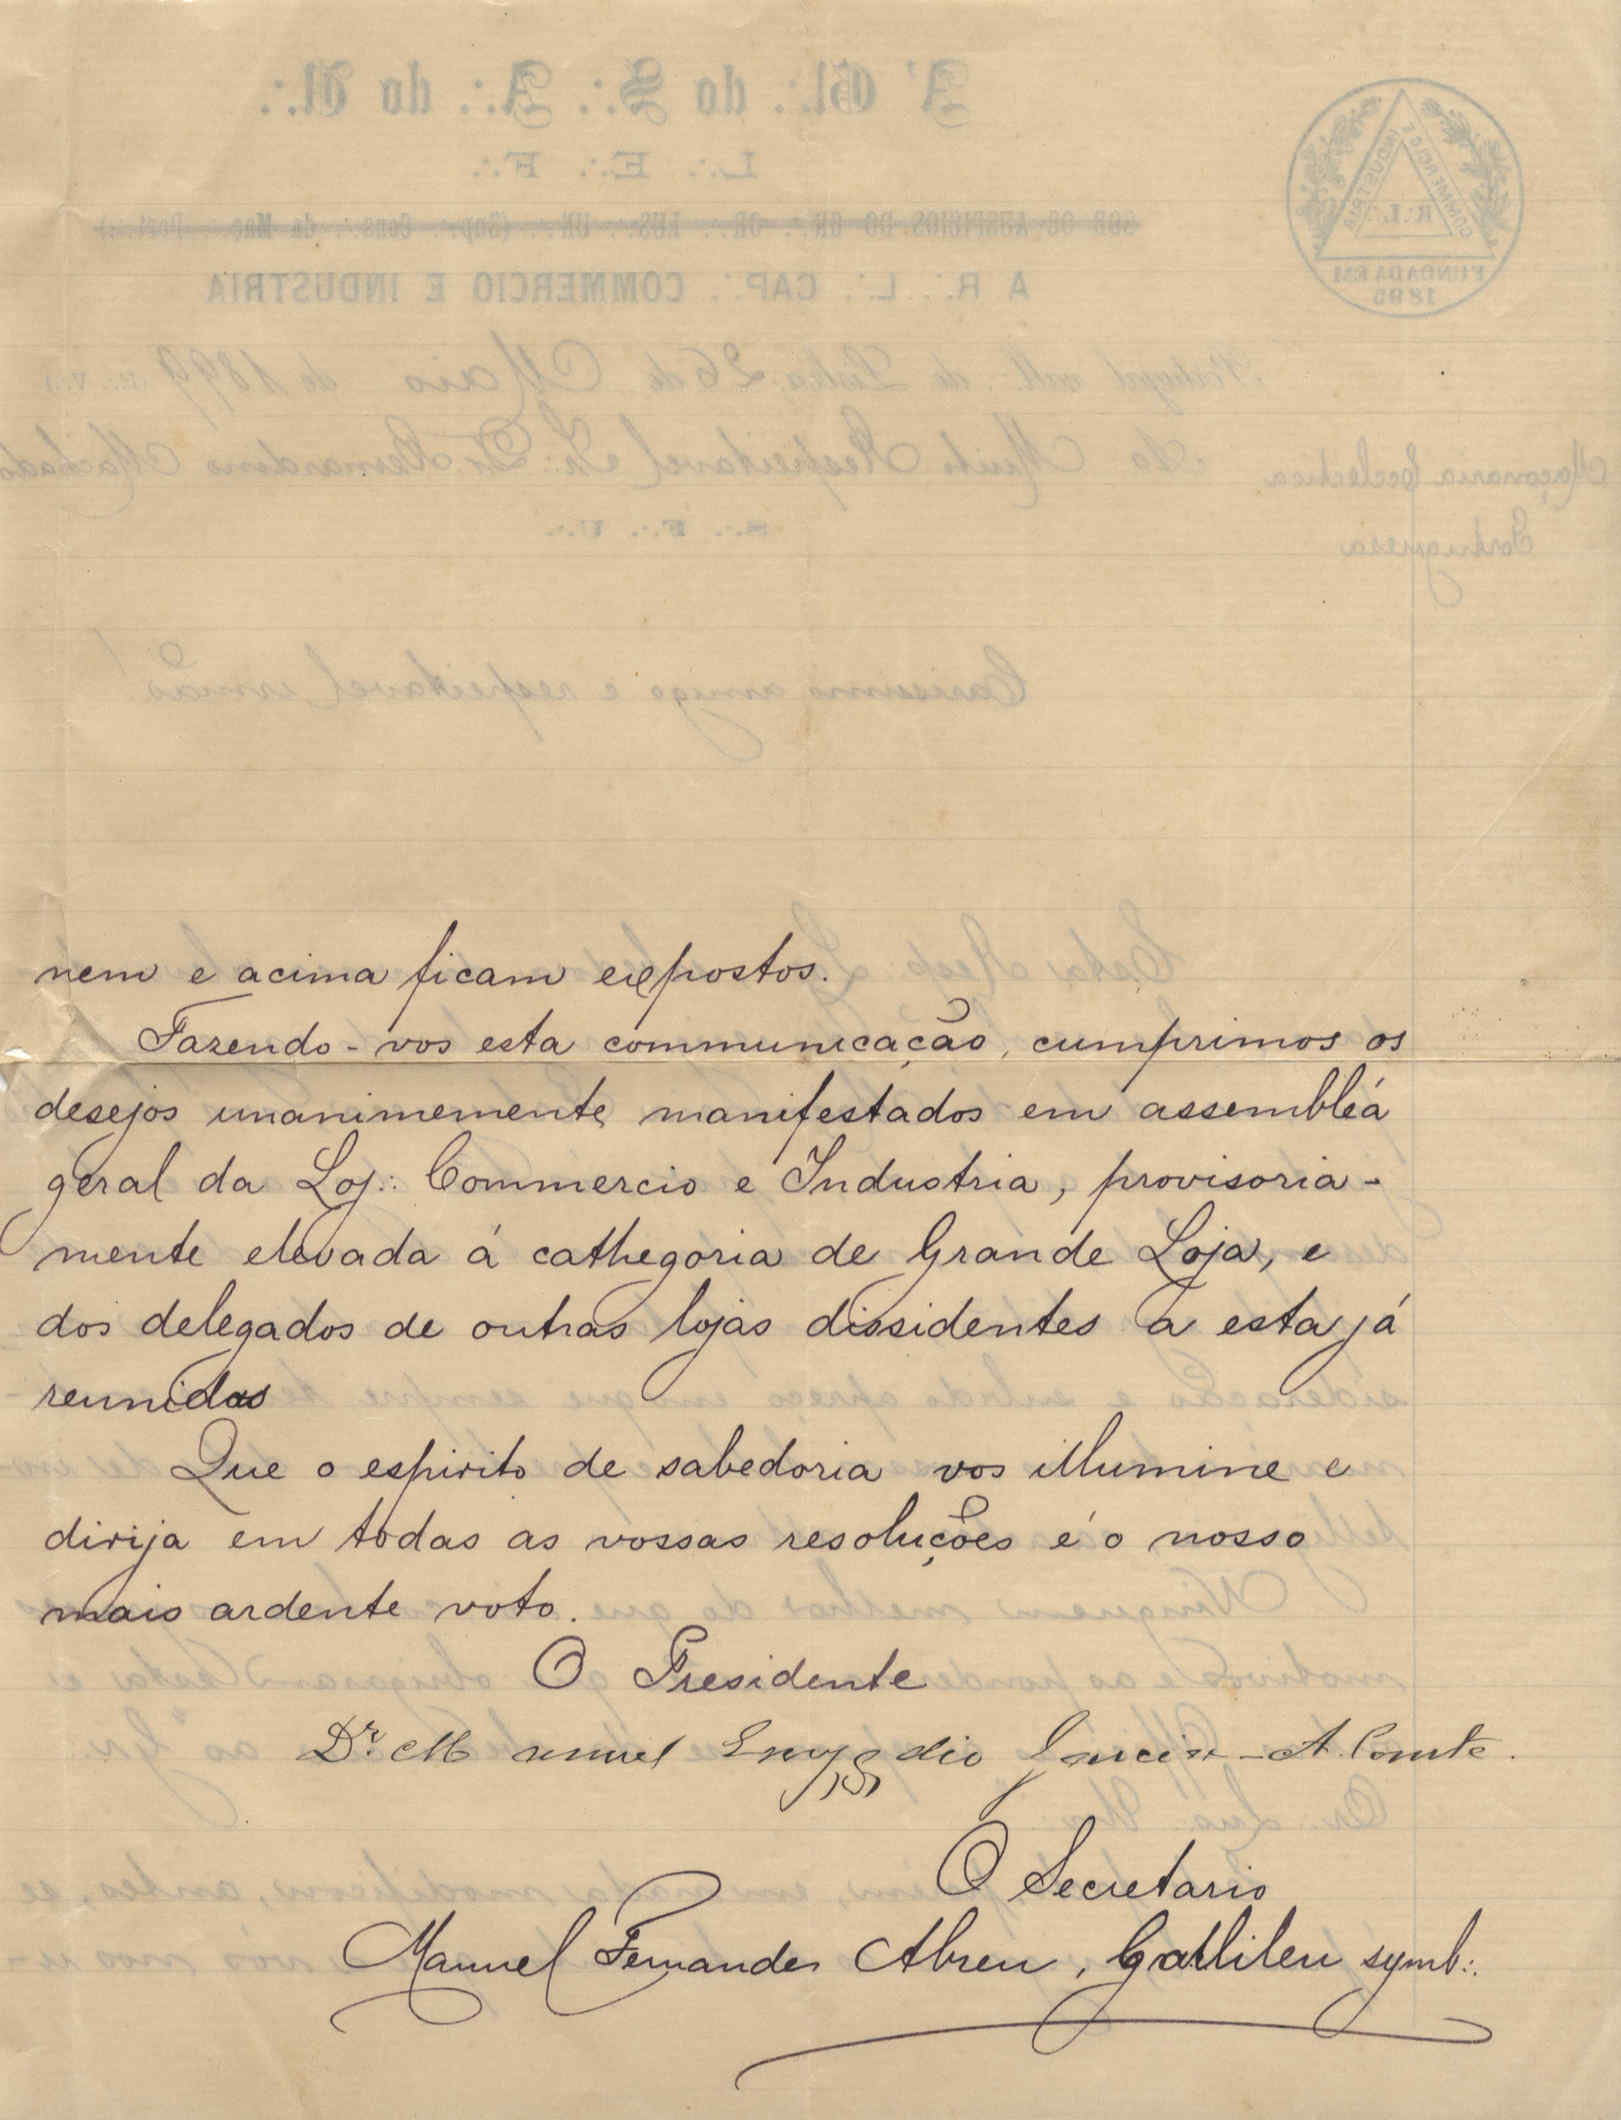 nem e acima ficam expostos.
Fazendo-vos esta communicação, cumprimos os
desejos unanimemente manifestados em assembléa
geral da Loj.: Commercio e Industria, provisoria-
mente elevada á cathegoria de Grande Loja, e
dos delegados de outras lojas dissidentes a esta já
reunidas
Que o espirito de sabedoria vos illumine e
dirija em todas as vossas resoluções é o nosso
mais ardente voto.
O Presidente
Dr. Manuel Emygdio Garcia - A. Comte.
O Secretario
Manuel Fernandes Abreu, Gallileu symb.: